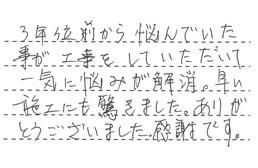 3年位前から悩んでいた
事が工事をしていただいて
一気に悩みが解消。早い
施工にも驚きました。ありが
とうございました。感謝です。